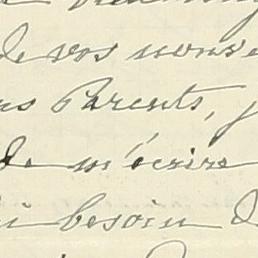 de vos nouve
Parents,
de m'écrire
besoin d